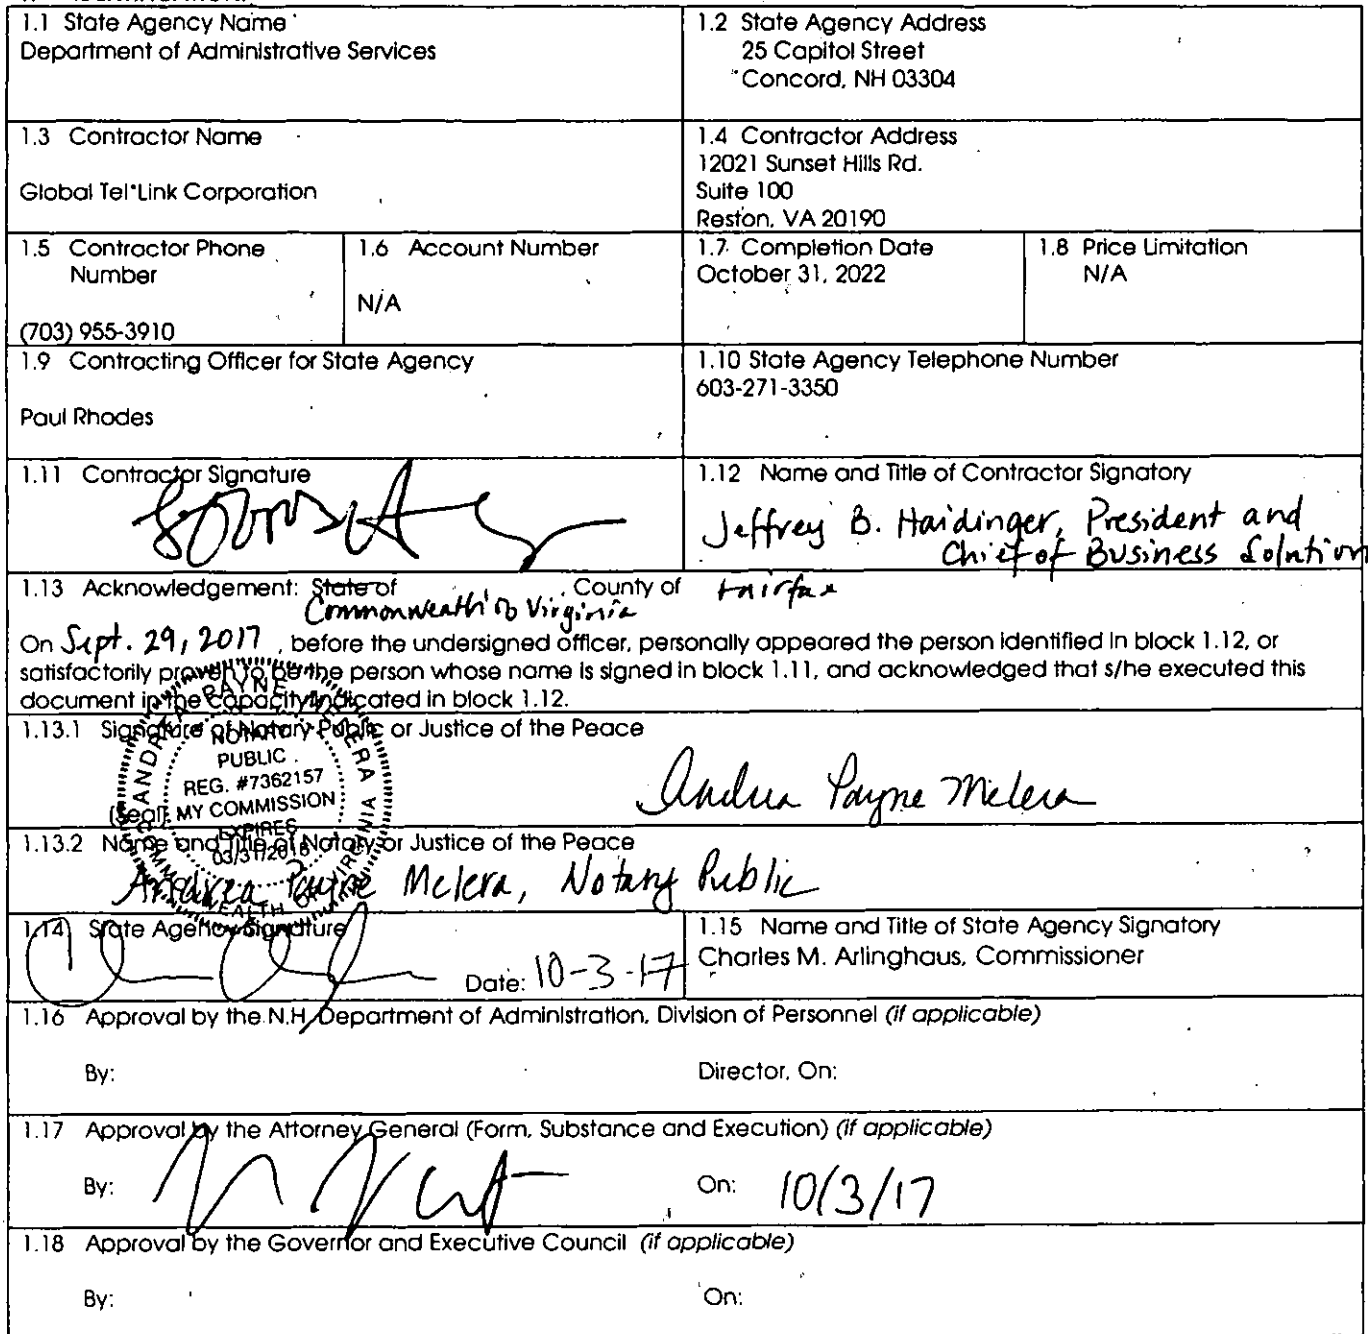 1.1 State Agency Name
Department of Administrative Services
1.2 State Agency Address
25 Capitol Street
Concord, NH 03304
1.3 Contractor Name
Global Tel*Link Corporation
1.4 Contractor Address
12021 Sunset Hills Rd.
Suite 100
Reston, VA 20190
1.5 Contractor Phone
Number
(703) 955-3910
1.6 Account Number
N/A
1.7 Completion Date
October 31, 2022
1.8 Price Limitation
N/A
1.9 Contracting Officer for State Agency
Paul Rhodes
1.10 State Agency Telephone Number
603-271-3350
1.11 Contractor Signature
1.12 Name and Title of Contractor Signatory
Jeffrey B. Haidinger, President and
Chief of Business Solution
1.13 Acknowledgement: State of , County of Fairfax
Commonwealth of Virginia
On Sept. 29, 2017 , before the undersigned officer, personally appeared the person identified in block 1.12, or
satisfactorily proven to be the person whose name is signed in block 1.11, and acknowledged that s/he executed this
document in the capacity indicated in block 1.12.
1.13.1 Signature of Notary Public or Justice of the Peace
ANDREA PAYNE MELERA
NOTARY
PUBLIC
REG. #7362157
MY COMMISSION
EXPIRES
COMMONWEALTH OF VIRGINIA
(Seal)
Andrea Payne Melera
1.13.2 Name and Title of Notary or Justice of the Peace
Andrea Payne Melera, Notary Public
1.14 State Agency Signature
Date: 10-3-17
1.15 Name and Title of State Agency Signatory
Charles M. Arlinghaus, Commissioner
1.16 Approval by the N.H. Department of Administration, Division of Personnel (if applicable)
By: Director, On:
1.17 Approval by the Attorney General (Form, Substance and Execution) (if applicable)
By: On: 10/3/17
1.18 Approval by the Governor and Executive Council (if applicable)
By: On: